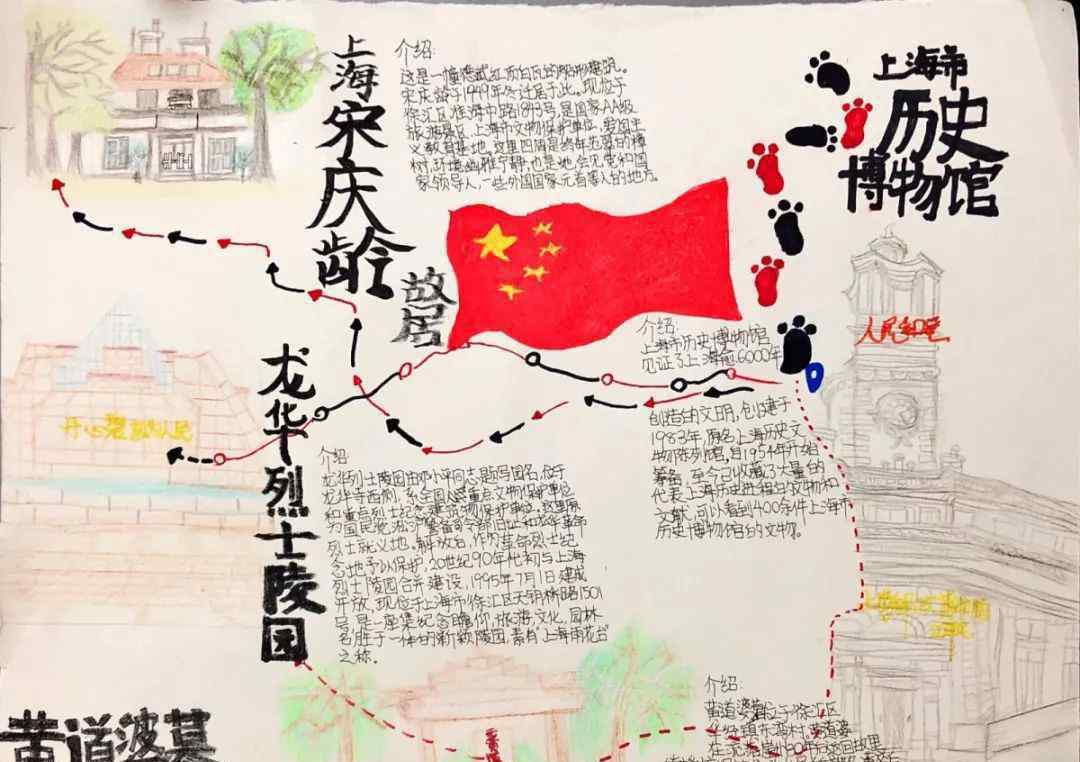 上海宋庆龄故居
介绍:
这是一幢德式红顶白瓦的船形建筑。
宋庆龄于1949年冬迁居于此。现位于
徐汇区淮海中路1843号,是国家AA级
旅游景区、上海市文物保护单位、爱国主
义教育基地。这里四周是终年葱郁的樟
树,环境幽雅宁静,也是她会见党和国
家领导人、一些外国国家元首等人的地方。
上海市
历史
博物馆
人民和平
介绍:
上海市历史博物馆
见证了上海前6000年
创造的文明,创建于
1983年,原名上海历史文
物陈列馆,自1954年开始
筹备,至今已收藏了大量的
代表上海历史进程的文物和
文献,可以看到400余件上海市
历史博物馆的文物。
龙华烈士陵园
丹心碧血为人民
介绍
龙华烈士陵园由邓小平同志题写园名,位于
龙华寺西侧,系全国人民重点文物保护单位
和重点烈士纪念建筑物保护单位。这里原
为国民党淞沪警备司令部旧址和龙华革命
烈士就义地。解放后,作为革命烈士纪
念地予以保护,20世纪90年代初与上海
烈士陵园合并建设,1995年7月1日建成
开放,现位于上海市徐汇区天钥桥路1501
号,是一座集纪念瞻仰、旅游、文化、园林
名胜于一体的新颖陵园,素有“上海雨花台”
之称。
黄道婆墓
介绍:
黄道婆墓位于徐汇区
华泾镇东湾村,黄道婆